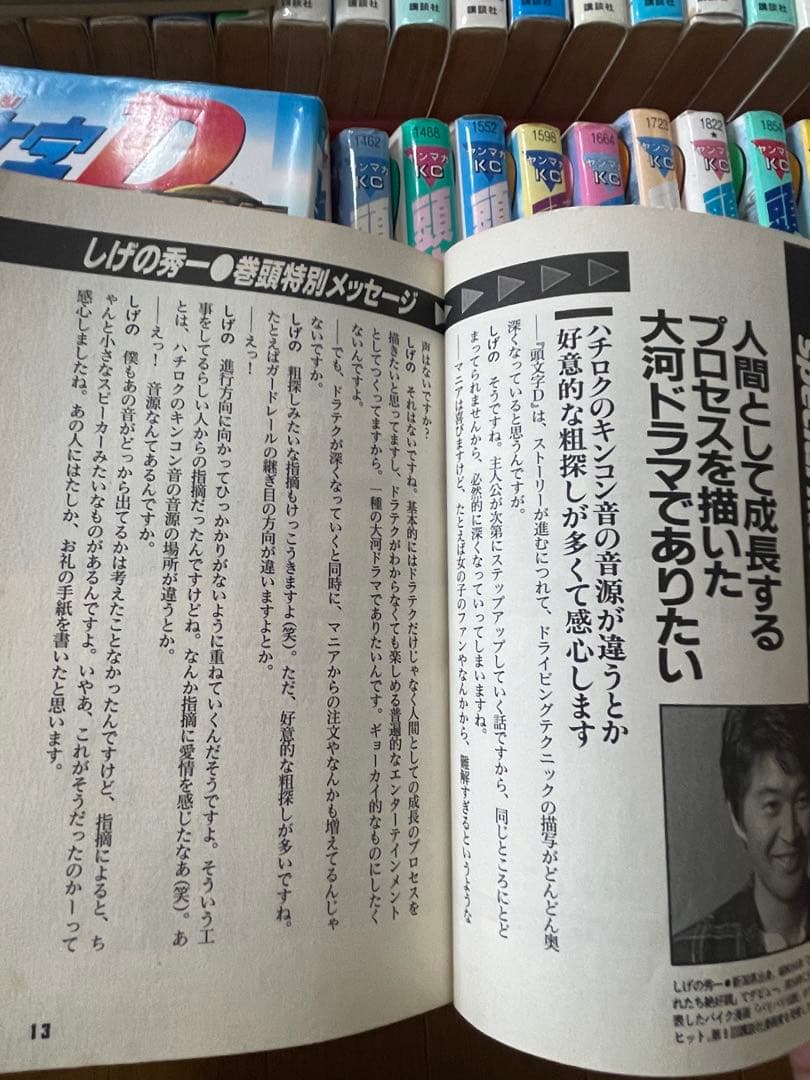 講談社
講談社
講談社
講談社
講談社
講談社
字D
1462
1488
1552
1598
1664
1723
1822
1854
ヤンマガ
KC
ヤンマガ
KC
ヤンマガ
KC
ヤンマガ
KC
ヤンマガ
KC
ヤンマガ
KC
ヤンマガ
KC
頭
頭
頭
頭
頭
頭
人間として成長する
プロセスを描いた
大河ドラマでありたい
ハチロクのキンコン音の音源が違うとか
好意的な粗探しが多くて感心します
──『頭文字D』は、ストーリーが進むにつれて、ドライビングテクニックの描写がどんどん奥
深くなっていると思うんですが。
しげの　そうですね。主人公が次第にステップアップしていく話ですから、同じところにとど
まってられませんから、必然的に深くなっていってしまいますね。
──マニアは喜びますけど、たとえば女の子のファンやなんかから、難解すぎるというような
しげの秀一●新潟県出身。
しげの秀一●巻頭特別メッセージ
声はないですか？
しげの　それはないですね。基本的にはドラテクだけじゃなく人間としての成長のプロセスを
描きたいと思ってますし、ドラテクがわからなくても楽しめる普遍的なエンターテインメント
としてつくってますから。一種の大河ドラマでありたいんです。ギョーカイ的なものにしたく
ないんですよ。
──でも、ドラテクが深くなっていくと同時に、マニアからの注文やなんかも増えてるんじゃ
ないですか。
しげの　粗探しみたいな指摘もけっこうきますよ（笑）。ただ、好意的な粗探しが多いですね。
たとえばガードレールの継ぎ目の方向が違いますよとか。
──えっ！
しげの　進行方向に向かってひっかかりがないように重ねていくんだそうですよ。そういう工
事をしてるらしい人からの指摘だったんですけどね。なんか指摘に愛情を感じたなあ（笑）。あ
とは、ハチロクのキンコン音の音源の場所が違うとか。
──えっ！　音源なんてあるんですか。
しげの　僕もあの音がどっから出てるかは考えたことなかったんですけど、指摘によると、ち
ゃんと小さなスピーカーみたいなものがあるんですよ。いやあ、これがそうだったのかーって
感心しましたね。あの人にはたしか、お礼の手紙を書いたと思います。
13